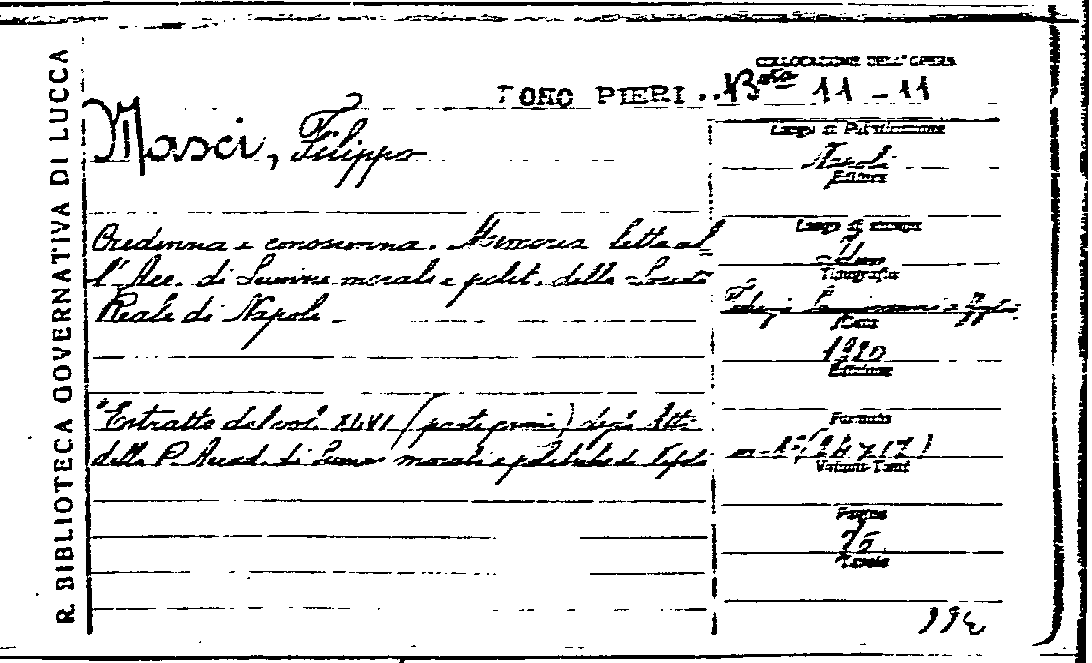 R. BIBLIOTECA GOVERNATIVA DI LUCCA
COLLOCAZIONE DELL'OPERA
FONO PIERI . . B.ta 11 - 11
Masci, Filippo
Credenza e conoscenza. Memoria letta al
l'Acc. di Scienze morali e polit. della Società
Reale di Napoli.
"Estratto dal vol. XLVI (parte prima) degli Atti
della R. Accad. di Scienze morali e politiche di Napoli
Luogo di Pubblicazione
Napoli
Editore
Luogo di stampa
Idem
Tipografia
Anno
1920
Edizione
Formato
in-8° (24 x 17)
Volumi-Tomi
Pagine
75
Tavole